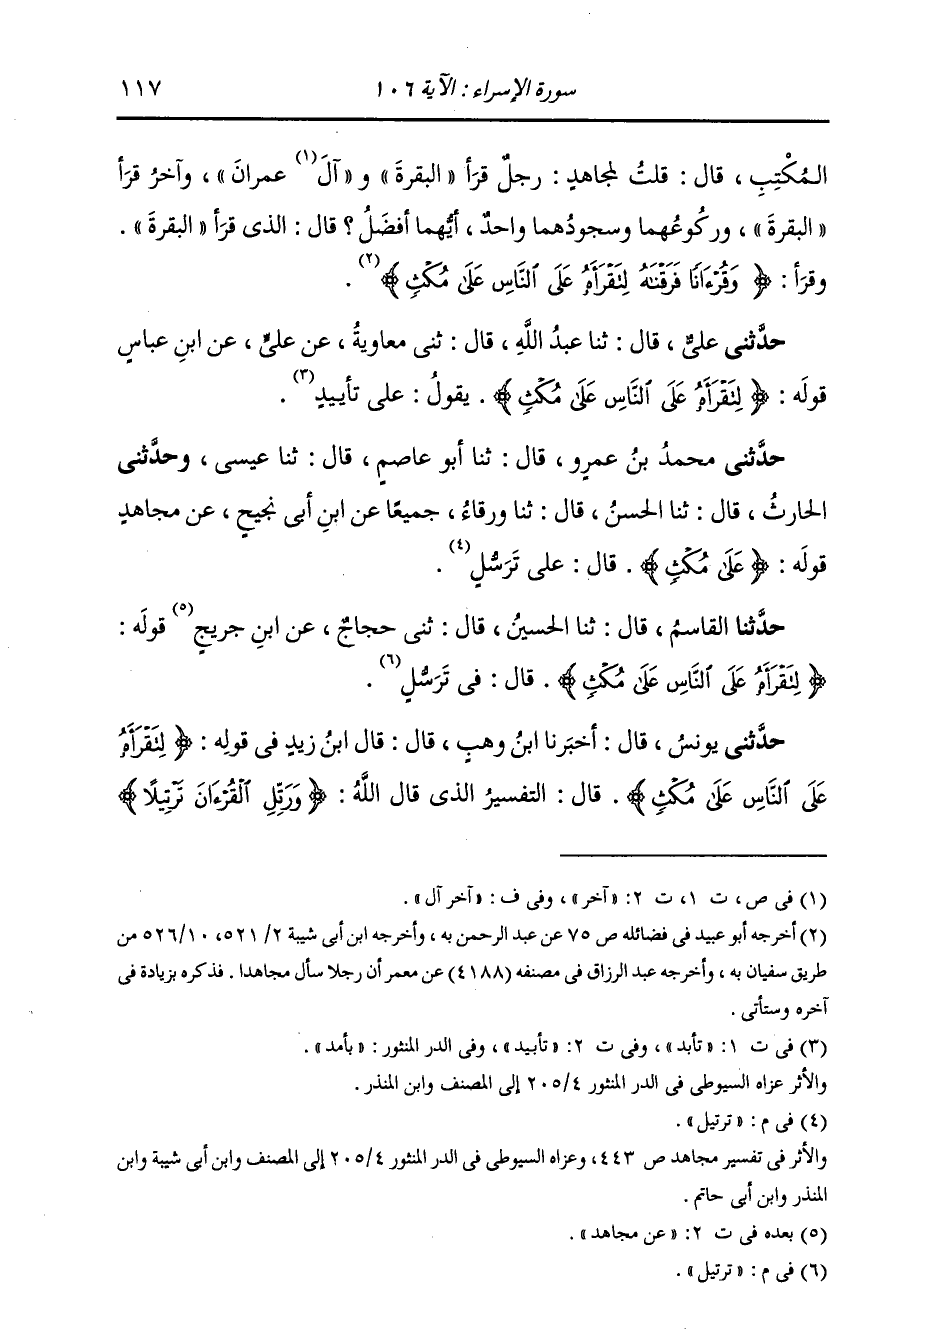 سورة الإسراء : الآية ١٠٦
١١٧
المُكْتِبِ ، قال : قلتُ لمجاهدٍ : رجلٌ قرَأ « البقرةَ » و « آلَ(١) عمرانَ » ، وآخرُ قرَأ
« البقرةَ » ، وركُوعُهما وسجودُهما واحدٌ ، أيُّهما أفضَلُ ؟ قال : الذى قرَأ « البقرةَ » .
وقرَأ : ﴿ وَقُرْءَانًا فَرَقْنَٰهُ لِتَقْرَأَهُۥ عَلَى ٱلنَّاسِ عَلَىٰ مُكْثٍ ﴾(٢) .
حدَّثنى علىٌّ ، قال : ثنا عبدُ اللَّهِ ، قال : ثنى معاويةُ ، عن علىٍّ ، عن ابنِ عباسٍ
قولَه : ﴿ لِتَقْرَأَهُۥ عَلَى ٱلنَّاسِ عَلَىٰ مُكْثٍ ﴾ . يقولُ : على تأييدٍ(٣) .
حدَّثنى محمدُ بنُ عمرٍو ، قال : ثنا أبو عاصمٍ ، قال : ثنا عيسى ، وحدَّثنى
الحارثُ ، قال : ثنا الحسنُ ، قال : ثنا ورقاءُ ، جميعًا عن ابنِ أبى نجيحٍ ، عن مجاهدٍ
قولَه : ﴿ عَلَىٰ مُكْثٍ ﴾ . قال : على تَرَسُّلٍ(٤) .
حدَّثنا القاسمُ ، قال : ثنا الحسينُ ، قال : ثنى حجاجٌ ، عن ابنِ جريجٍ(٥) قولَه :
﴿ لِتَقْرَأَهُۥ عَلَى ٱلنَّاسِ عَلَىٰ مُكْثٍ ﴾ . قال : فى تَرَسُّلٍ(٦) .
حدَّثنى يونسُ ، قال : أخبَرنا ابنُ وهبٍ ، قال : قال ابنُ زيدٍ فى قولِه : ﴿ لِتَقْرَأَهُۥ
عَلَى ٱلنَّاسِ عَلَىٰ مُكْثٍ ﴾ . قال : التفسيرُ الذى قال اللَّهُ : ﴿ وَرَتِّلِ ٱلْقُرْءَانَ تَرْتِيلًا ﴾
(١) فى ص ، ت ١ ، ت ٢ : « آخر » ، وفى ف : « آخر آل » .
(٢) أخرجه أبو عبيد فى فضائله ص ٧٥ عن عبد الرحمن به ، وأخرجه ابن أبى شيبة ٢/ ٥٢١، ١٠/ ٥٢٦ من
طريق سفيان به ، وأخرجه عبد الرزاق فى مصنفه (٤١٨٨) عن معمر أن رجلا سأل مجاهدا . فذكره بزيادة فى
آخره وستأتى .
(٣) فى ت ١: « تأبد » ، وفى ت ٢: « تأبيد » ، وفى الدر المنثور : « بأمد » .
والأثر عزاه السيوطى فى الدر المنثور ٤/ ٢٠٥ إلى المصنف وابن المنذر .
(٤) فى م : « ترتيل » .
والأثر فى تفسير مجاهد ص ٤٤٣، وعزاه السيوطى فى الدر المنثور ٤/ ٢٠٥ إلى المصنف وابن أبى شيبة وابن
المنذر وابن أبى حاتم .
(٥) بعده فى ت ٢: « عن مجاهد » .
(٦) فى م : « ترتيل » .